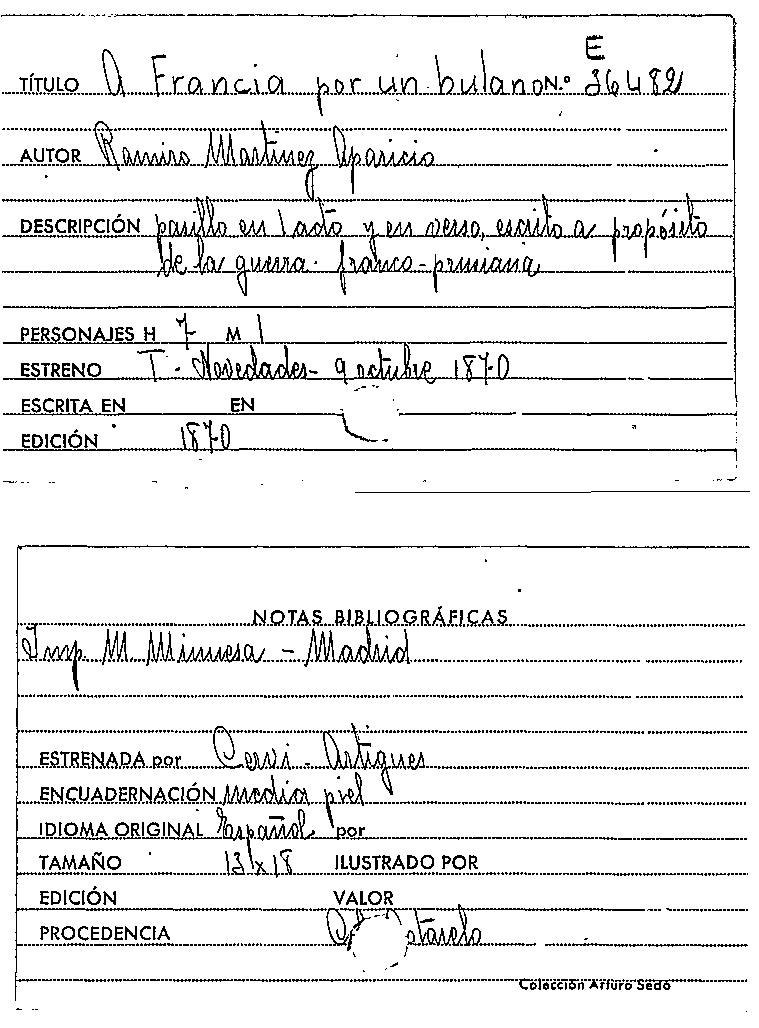 E
TÍTULO A Francia por un bulano N.º 36482
AUTOR Ramiro Martinez Aparicio
DESCRIPCIÓN pasillo en 1 acto y en verso, escrito a propósito
de la guerra franco-prusiana
PERSONAJES H 7 M 1
ESTRENO T. Novedades - 9 octubre 1870
ESCRITA EN EN
EDICIÓN 1870
NOTAS BIBLIOGRÁFICAS
Imp. M. Minuesa - Madrid
ESTRENADA por Cervi - Artigues
ENCUADERNACIÓN media piel
IDIOMA ORIGINAL Español por
TAMAÑO 13 x 18 ILUSTRADO POR
EDICIÓN VALOR
PROCEDENCIA
Colección Arturo Sedó